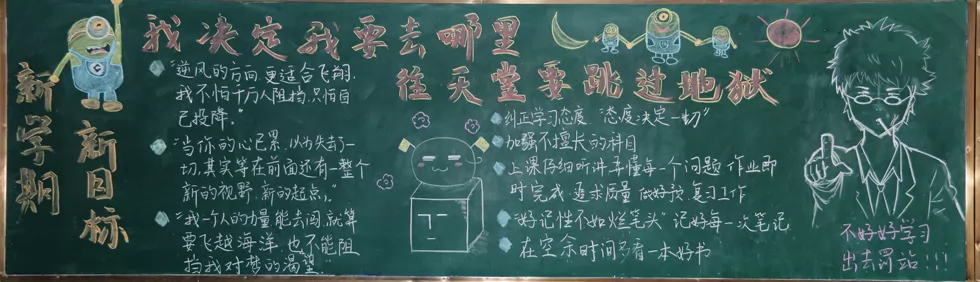 新学期
新目标
我决定我要去哪里
往天堂要跳过地狱
"逆风的方向,更适合飞翔.
我不怕千万人阻挡,只怕自
己投降."
"当你的心已累,以为失去了一
切,其实等在前面还有一整个
新的视野,新的起点."
"我一个人的力量能去闯,就算
要飞越海洋,也不能阻
挡我对梦的渴望."
纠正学习态度 "态度决定一切"
加强不擅长的科目
上课仔细听讲弄懂每一个问题,作业即
时完成,追求质量 做好预、复习工作
"好记性不如烂笔头" 记好每一次笔记
在空余时间多看一本好书
不好好学习
出去罚站!!!